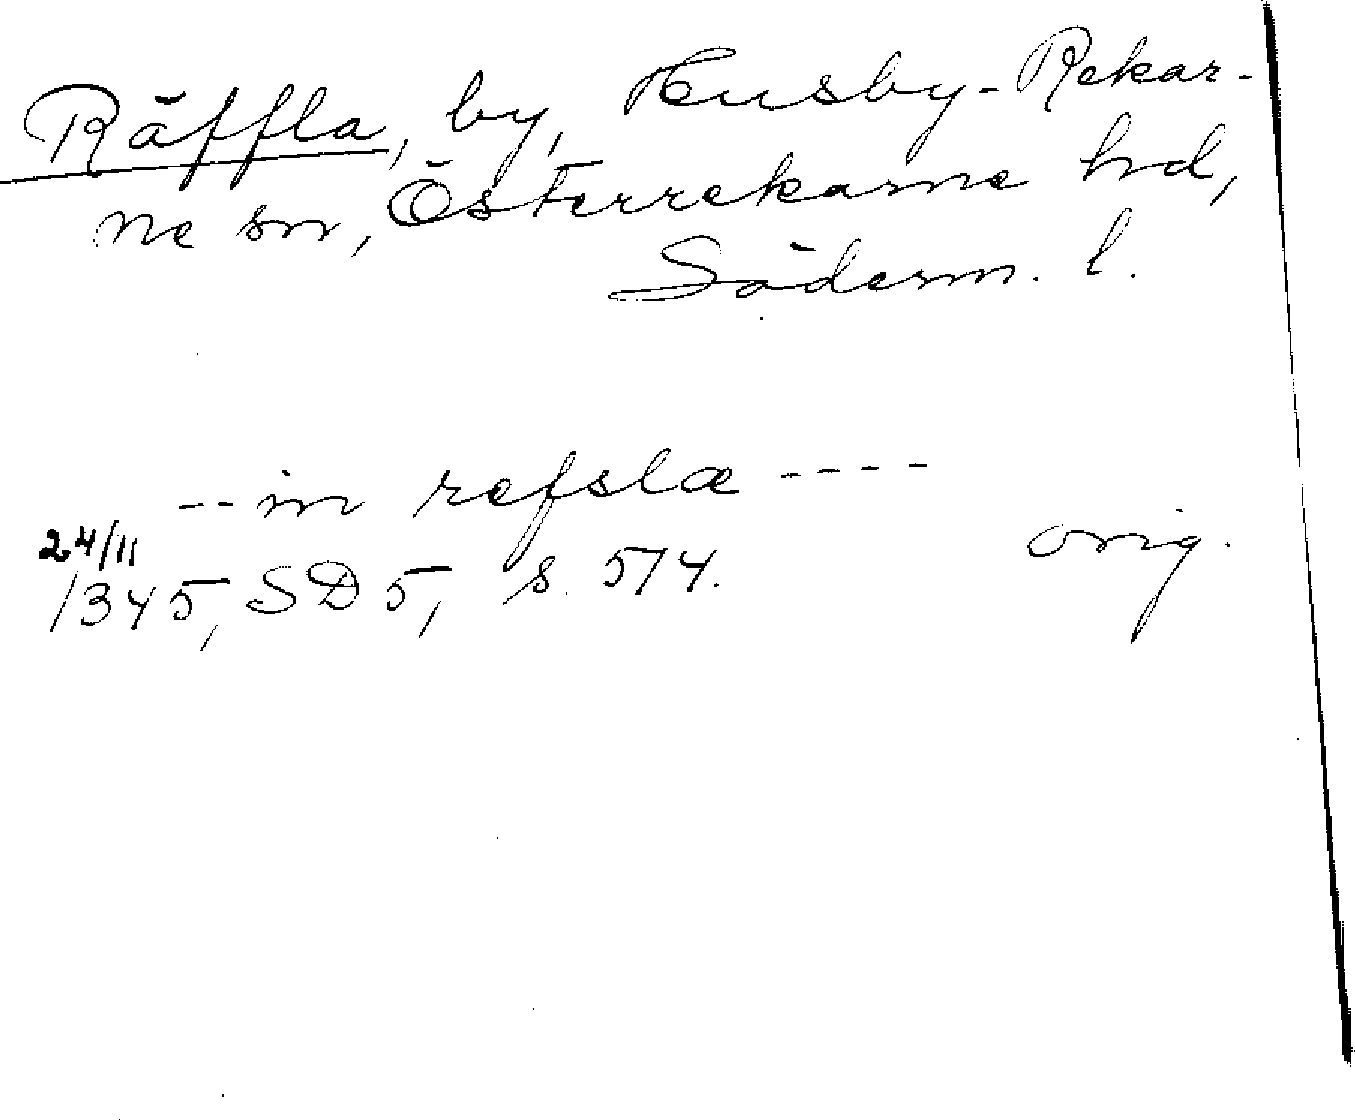 Räffla, by, Husby-Rekar-
ne sn, Österrekarne hd,
Söderm. l.
-- in refslæ ----
24/11
1345, SD 5, s. 574.
orig.